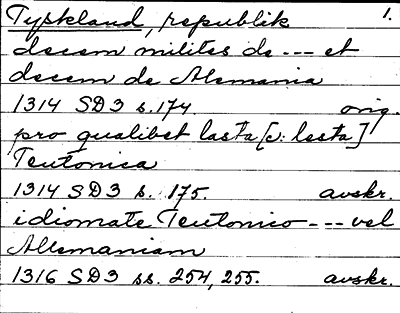 Tyskland, republik 1.
decem milites de --- et
decem de Alemania
1314 SD3 s. 174. orig.
pro qualibet lasta [ɔ: lesta]
Teutonica
1314 SD3 s. 175. avskr.
idiomate Teutonico --- vel
Allemaniam
1316 SD3 ss. 254, 255. avskr.